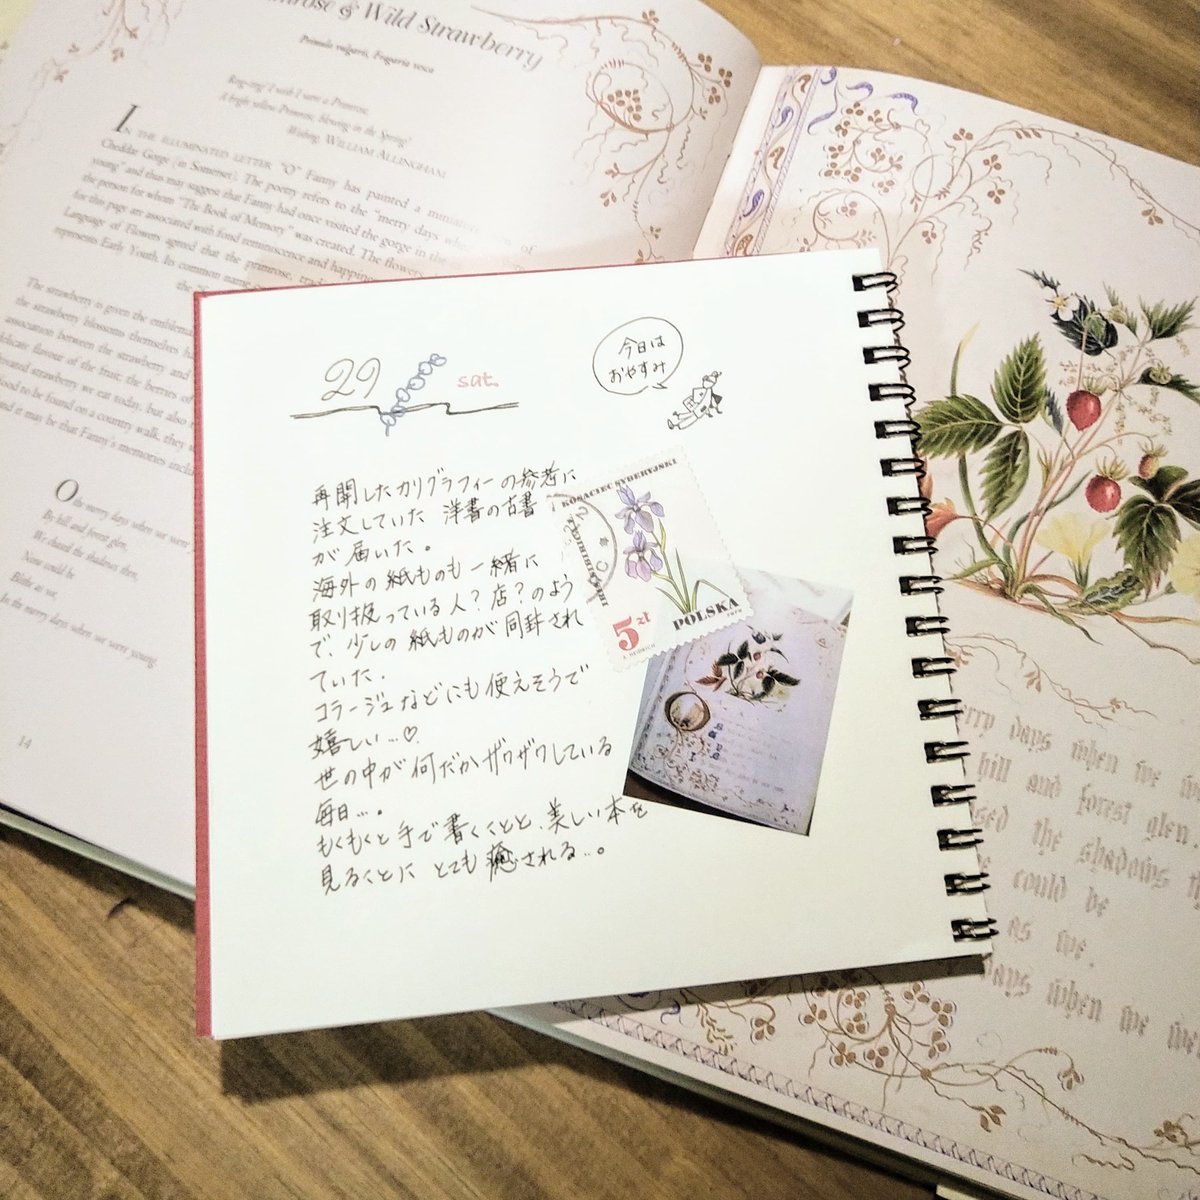 & Wild Strawberry
Primula vulgaris, Fragaria vesca
Ring-ting! I wish I were a Primrose,
A bright yellow Primrose, blowing in the Spring!
WILLIAM ALLINGHAM
IN THE ILLUMINATED LETTER "O" Fanny has painted a
Cheddar Gorge (in Somerset). The poetry refers to the "merry days
young" and thus may suggest that Fanny had once visited the gorge in the
the person for whom "The Book of Memory" was created. The flowers
for this page are associated with fond reminiscence and
Language of Flowers agreed that the primrose,
represents Early Youth. Its common name
The strawberry is given the
the strawberry blossoms themselves
association between the strawberry and
delicate flavour of the fruit; the berries of
strawberry we eat today, but also
to be found on a country walk, they
and it may be that Fanny's memories
Oh the merry days when we were
By hill and forest glen,
We chased the shadows then,
None could be
Blithe as we.
In the merry days when we were young.
14
29 sat.
今日は
おやすみ
再開したカリグラフィーの参考に
注文していた 洋書の古書
が届いた。
海外の紙ものも一緒に
取り扱っている人?店?のよう
で、少しの紙ものが同封され
ていた.
コラージュなどにも使えそうで
嬉しい…♡
世の中が何だかザワザワしている
毎日…。
もくもくと手で書くことと、美しい本を
見ることに とても癒される…。
KOSACIEC SYBERYJSKI
5 zł
POLSKA
days when we
hill and forest glen
the shadows
could be
as we.
days when we were